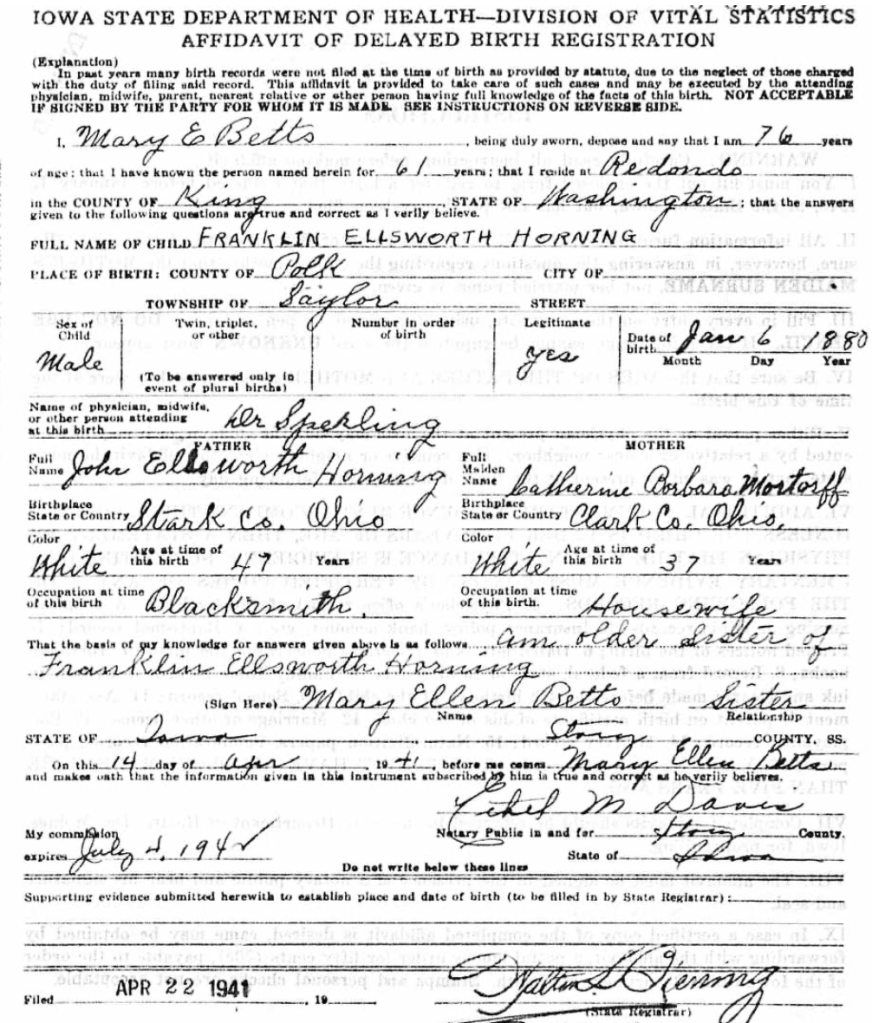 IOWA STATE DEPARTMENT OF HEALTH—DIVISION OF VITAL STATISTICS
AFFIDAVIT OF DELAYED BIRTH REGISTRATION
(Explanation)
In past years many birth records were not filed at the time of birth as provided by statute, due to the neglect of those charged
with the duty of filing said record. This affidavit is provided to take care of such cases and may be executed by the attending
physician, midwife, parent, nearest relative or other person having full knowledge of the facts of this birth. NOT ACCEPTABLE
IF SIGNED BY THE PARTY FOR WHOM IT IS MADE. SEE INSTRUCTIONS ON REVERSE SIDE.
I, Mary E Betts, being duly sworn, depose and say that I am 76 years
of age; that I have known the person named herein for 61 years; that I reside at Redondo
in the COUNTY OF King, STATE OF Washington; that the answers
given to the following questions are true and correct as I verily believe.
FULL NAME OF CHILD FRANKLIN ELLSWORTH HORNING
PLACE OF BIRTH: COUNTY OF Polk CITY OF
TOWNSHIP OF Saylor STREET
Sex of Child Male
Twin, triplet, or other
(To be answered only in event of plural births)
Number in order of birth
Legitimate yes
Date of birth Jan 6 1880
Month Day Year
Name of physician, midwife,
or other person attending
at this birth Dr Sperling
FATHER MOTHER
Full Name John Ellsworth Horning Full Maiden Name Catherine Borbara Mortorff
Birthplace State or Country Stark Co. Ohio Birthplace State or Country Clark Co. Ohio,
Color White Age at time of this birth 47 Years Color White Age at time of this birth 37 Years
Occupation at time of this birth Blacksmith Occupation at time of this birth. Housewife
That the basis of my knowledge for answers given above is as follows an older sister of
Franklin Ellsworth Horning
(Sign Here) Mary Ellen Betts - Sister
Name Relationship
STATE OF Iowa Story COUNTY, SS.
On this 14 day of Apr 1941, before me comes Mary Ellen Betts
and makes oath that the information given in this instrument subscribed by him is true and correct as he verily believes.
Ethel M. Davis
My commission Notary Public in and for Story County.
expires July 4, 194 State of Iowa
Do not write below these lines
Supporting evidence submitted herewith to establish place and date of birth (to be filled in by State Registrar):
Filed APR 22 1941 19
(State Registrar)